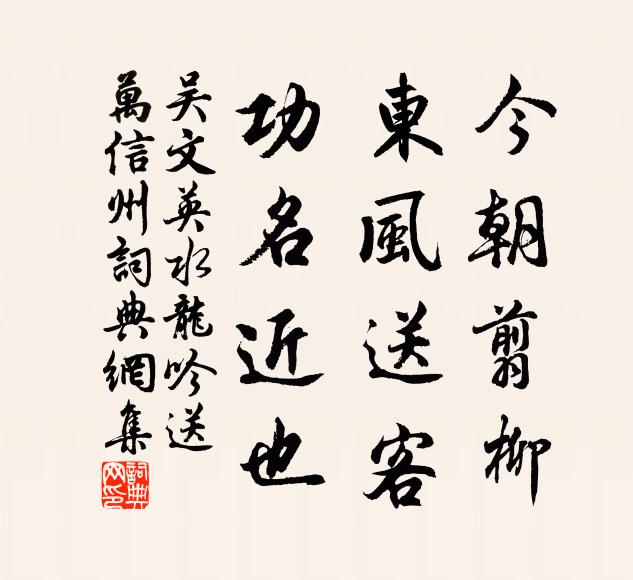 今朝翦柳
東風送客
功名近也
吳文英水龍吟送
萬信州詞典網集
詞典網印